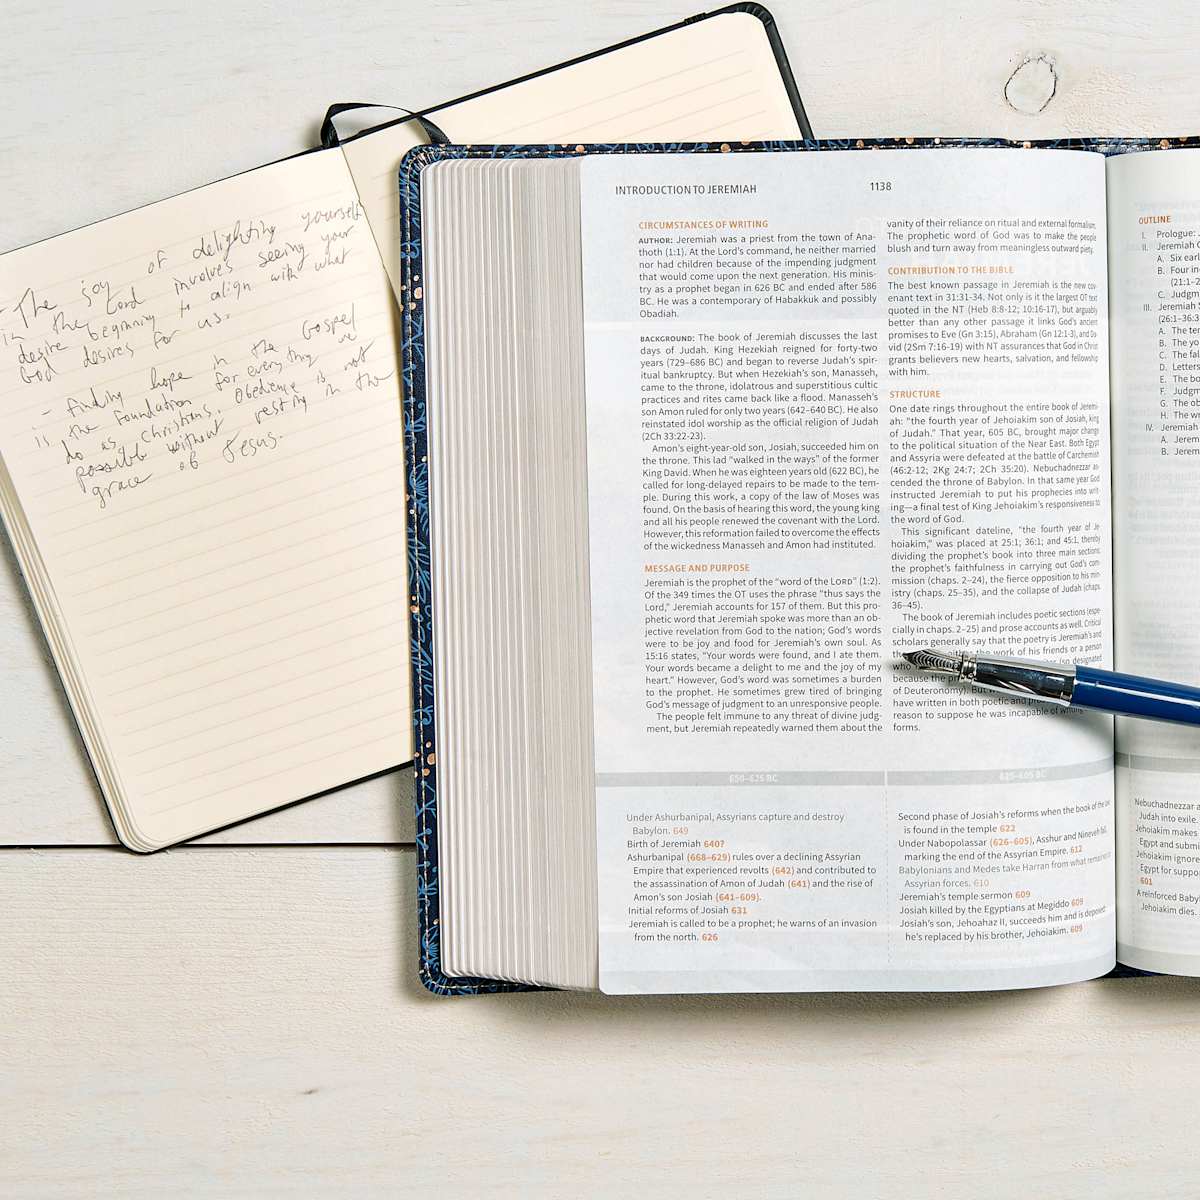 - The joy of delighting yourself
in the Lord involves seeing your
desire beginning to align with what
God desires for us.
- finding hope in the Gospel
is the foundation for everything we
do as Christians. Obedience is not
possible without resting in the
grace of Jesus.
INTRODUCTION TO JEREMIAH
1138
CIRCUMSTANCES OF WRITING
AUTHOR: Jeremiah was a priest from the town of Ana-
thoth (1:1). At the Lord's command, he neither married
nor had children because of the impending judgment
that would come upon the next generation. His minis-
try as a prophet began in 626 BC and ended after 586
BC. He was a contemporary of Habakkuk and possibly
Obadiah.
BACKGROUND: The book of Jeremiah discusses the last
days of Judah. King Hezekiah reigned for forty-two
years (729–686 BC) and began to reverse Judah's spir-
itual bankruptcy. But when Hezekiah's son, Manasseh,
came to the throne, idolatrous and superstitious cultic
practices and rites came back like a flood. Manasseh's
son Amon ruled for only two years (642–640 BC). He also
reinstated idol worship as the official religion of Judah
(2Ch 33:22-23).
Amon's eight-year-old son, Josiah, succeeded him on
the throne. This lad "walked in the ways" of the former
King David. When he was eighteen years old (622 BC), he
called for long-delayed repairs to be made to the tem-
ple. During this work, a copy of the law of Moses was
found. On the basis of hearing this word, the young king
and all his people renewed the covenant with the Lord.
However, this reformation failed to overcome the effects
of the wickedness Manasseh and Amon had instituted.
MESSAGE AND PURPOSE
Jeremiah is the prophet of the "word of the LORD" (1:2).
Of the 349 times the OT uses the phrase "thus says the
Lord," Jeremiah accounts for 157 of them. But this pro-
phetic word that Jeremiah spoke was more than an ob-
jective revelation from God to the nation; God's words
were to be joy and food for Jeremiah's own soul. As
15:16 states, "Your words were found, and I ate them.
Your words became a delight to me and the joy of my
heart." However, God's word was sometimes a burden
to the prophet. He sometimes grew tired of bringing
God's message of judgment to an unresponsive people.
The people felt immune to any threat of divine judg-
ment, but Jeremiah repeatedly warned them about the
vanity of their reliance on ritual and external formalism.
The prophetic word of God was to make the people
blush and turn away from meaningless outward piety.
CONTRIBUTION TO THE BIBLE
The best known passage in Jeremiah is the new cov-
enant text in 31:31-34. Not only is it the largest OT text
quoted in the NT (Heb 8:8-12; 10:16-17), but arguably
better than any other passage it links God's ancient
promises to Eve (Gn 3:15), Abraham (Gn 12:1-3), and Da-
vid (2Sm 7:16-19) with NT assurances that God in Christ
grants believers new hearts, salvation, and fellowship
with him.
STRUCTURE
One date rings throughout the entire book of Jeremi-
ah: "the fourth year of Jehoiakim son of Josiah, king
of Judah." That year, 605 BC, brought major change
to the political situation of the Near East. Both Egypt
and Assyria were defeated at the battle of Carchemish
(46:2-12; 2Kg 24:7; 2Ch 35:20). Nebuchadnezzar as-
cended the throne of Babylon. In that same year God
instructed Jeremiah to put his prophecies into writ-
ing—a final test of King Jehoiakim's responsiveness to
the word of God.
This significant dateline, "the fourth year of Je
hoiakim," was placed at 25:1; 36:1; and 45:1, thereby
dividing the prophet's book into three main sections:
the prophet's faithfulness in carrying out God's com-
mission (chaps. 2–24), the fierce opposition to his min-
istry (chaps. 25–35), and the collapse of Judah (chaps.
36–45).
The book of Jeremiah includes poetic sections (espe
cially in chaps. 2–25) and prose accounts as well. Critical
scholars generally say that the poetry is Jeremiah's and
the work of his friends or a person
who (so designated
because the
of Deuteronomy). But
have written in both poetic and
reason to suppose he was incapable of
forms.
650–625 BC
Under Ashurbanipal, Assyrians capture and destroy
Babylon. 649
Birth of Jeremiah 640?
Ashurbanipal (668–629) rules over a declining Assyrian
Empire that experienced revolts (642) and contributed to
the assassination of Amon of Judah (641) and the rise of
Amon's son Josiah (641–609).
Initial reforms of Josiah 631
Jeremiah is called to be a prophet; he warns of an invasion
from the north. 626
625–605 BC
Second phase of Josiah's reforms when the book of the law
is found in the temple 622
Under Nabopolassar (626–605), Asshur and Nineveh fall,
marking the end of the Assyrian Empire. 612
Babylonians and Medes take Harran from what remained of
Assyrian forces. 610
Jeremiah's temple sermon 609
Josiah killed by the Egyptians at Megiddo 609
Josiah's son, Jehoahaz II, succeeds him and is deposed;
he's replaced by his brother, Jehoiakim. 609
OUTLINE
I. Prologue:
II. Jeremiah
A. Six earl
B. Four in
(21:1–2
C. Judgm
III. Jeremiah
(26:1–36:3
A. The te
B. The yo
C. The fal
D. Letters
E. The bo
F. Judgm
G. The ob
H. The wr
IV. Jeremiah
A. Jerem
B. Jerem
Nebuchadnezzar a
Judah into exile.
Jehoiakim makes
Egypt and submi
Jehoiakim ignore
Egypt for suppor
601
A reinforced Baby
Jehoiakim dies.